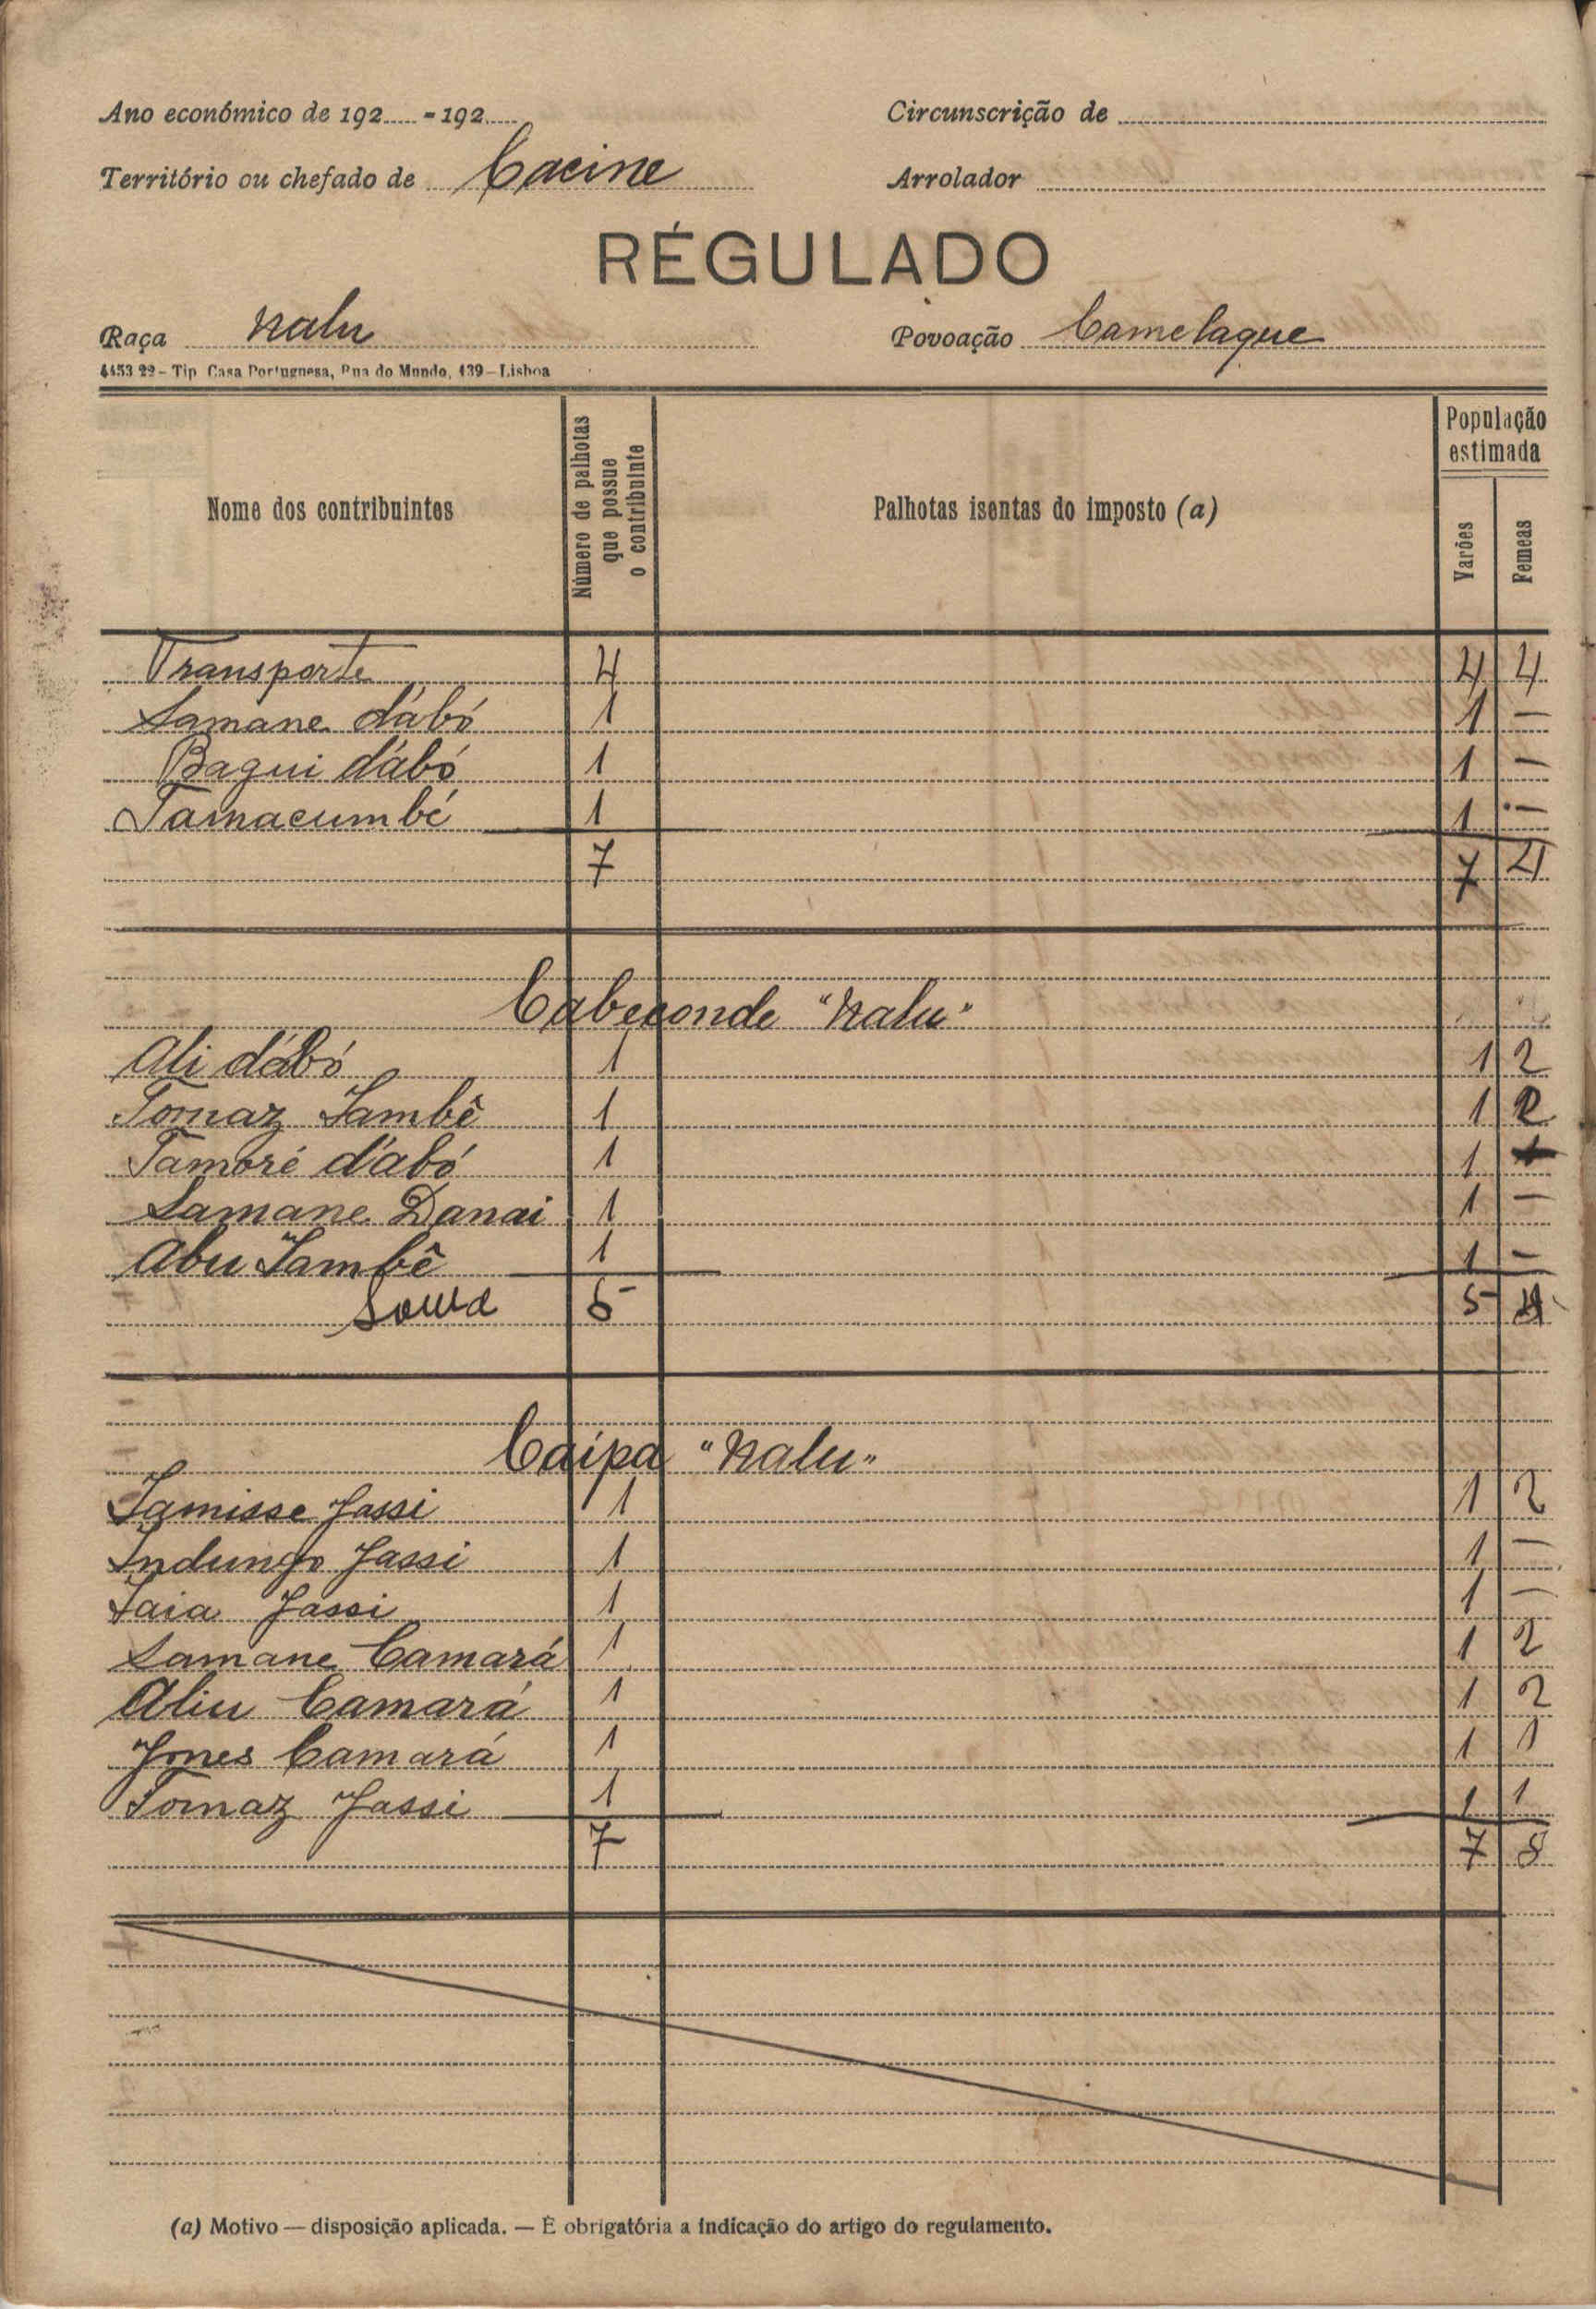 Ano económico de 192..... - 192.....
Circunscrição de
Território ou chefado de Cacine
Arrolador
RÉGULADO
Raça Nalu
Povoação Camelaque
4453 22 – Tip. Casa Portuguesa, Rua do Mundo, 139 – Lisboa
Nome dos contribuintes
Número de palhotas que possue o contribuinte
Palhotas isentas do imposto (a)
População estimada
Varões
Femeas
Transporte 4 4 4
Samane d'abó 1 1 —
Bagui d'abó 1 1 —
Tamacumbé 1 1 —
7 7 4
Cabeconde "Nalu"
Ali d'abó 1 1 2
Tomaz Sambê 1 1 2
Tamoré d'abó 1 1
Samane Danai 1 1 —
Abu Sambê 1 1 —
Soma 5 5 4
Caipa "Nalu"
Samisse Jassi 1 1 2
Indungo Jassi 1 1 —
Saia Jassi 1 1 —
Samane Camará 1 1 2
Aliu Camará 1 1 2
Jnes Camará 1 1 1
Tomaz Jassi 1 1 1
7 7 8
(a) Motivo — disposição aplicada. — É obrigatória a indicação do artigo do regulamento.